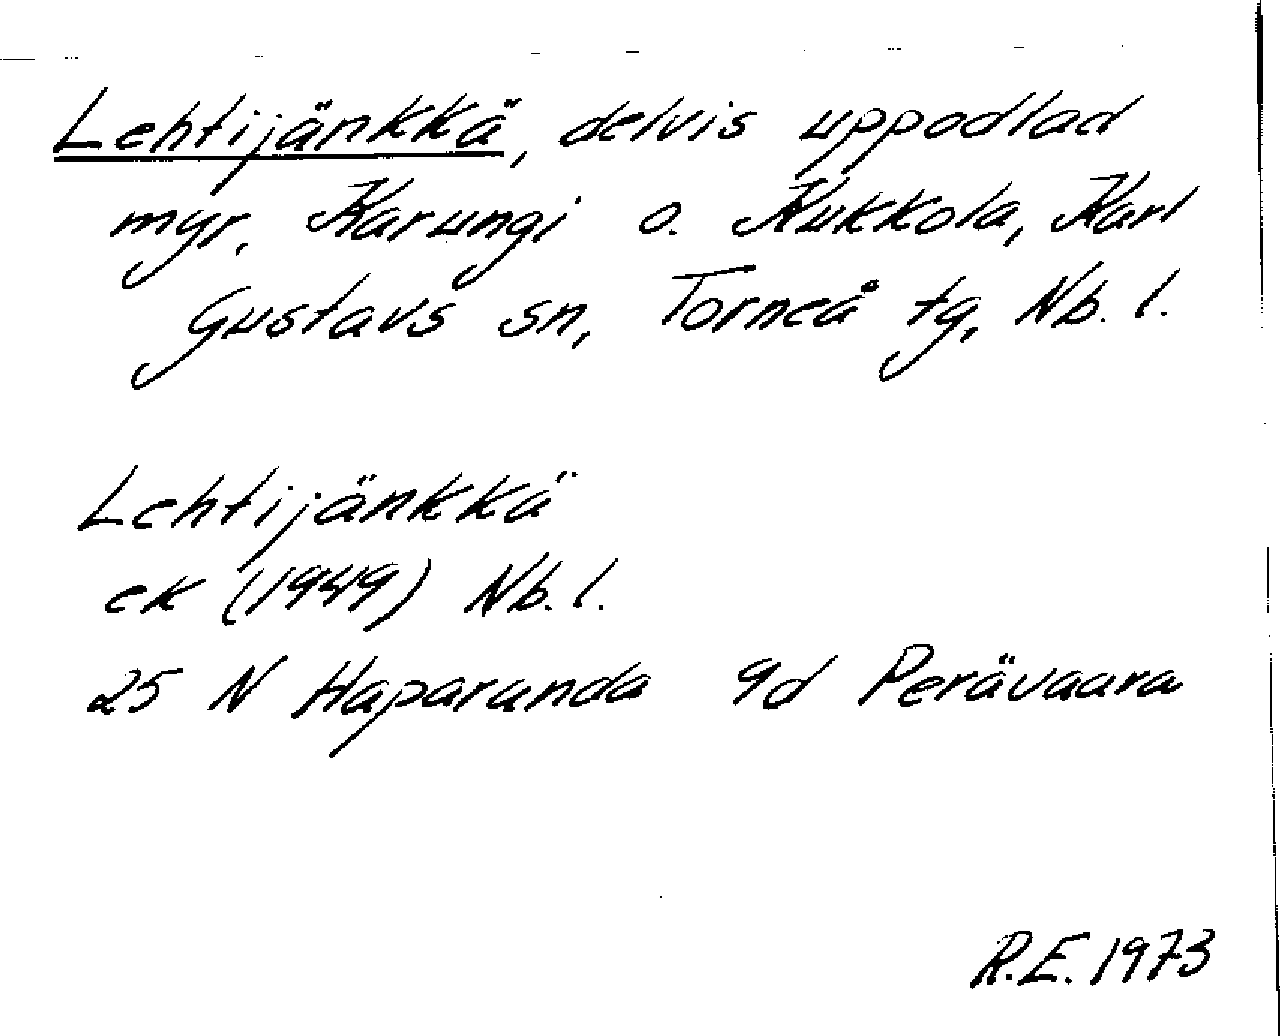 Lehtijänkkä, delvis uppodlad
myr, Karungi o. Kukkola, Karl
Gustavs sn, Torneå tg, Nb. l.
Lehtijänkkä
ek (1949) Nb. l.
25 N Haparanda 9d Perävaara
R.E. 1973